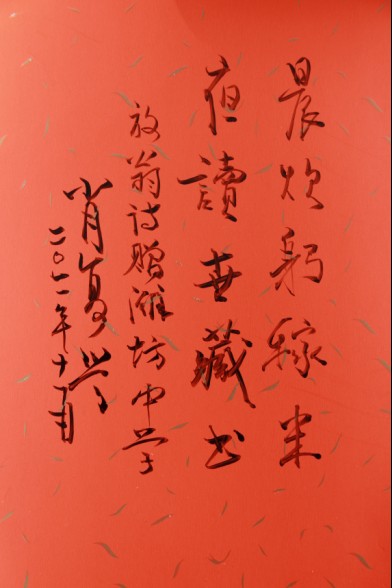 晨炊躬稼米
夜讀世藏书
放翁诗赠潍坊中学
肖复兴
二〇一一年十一月